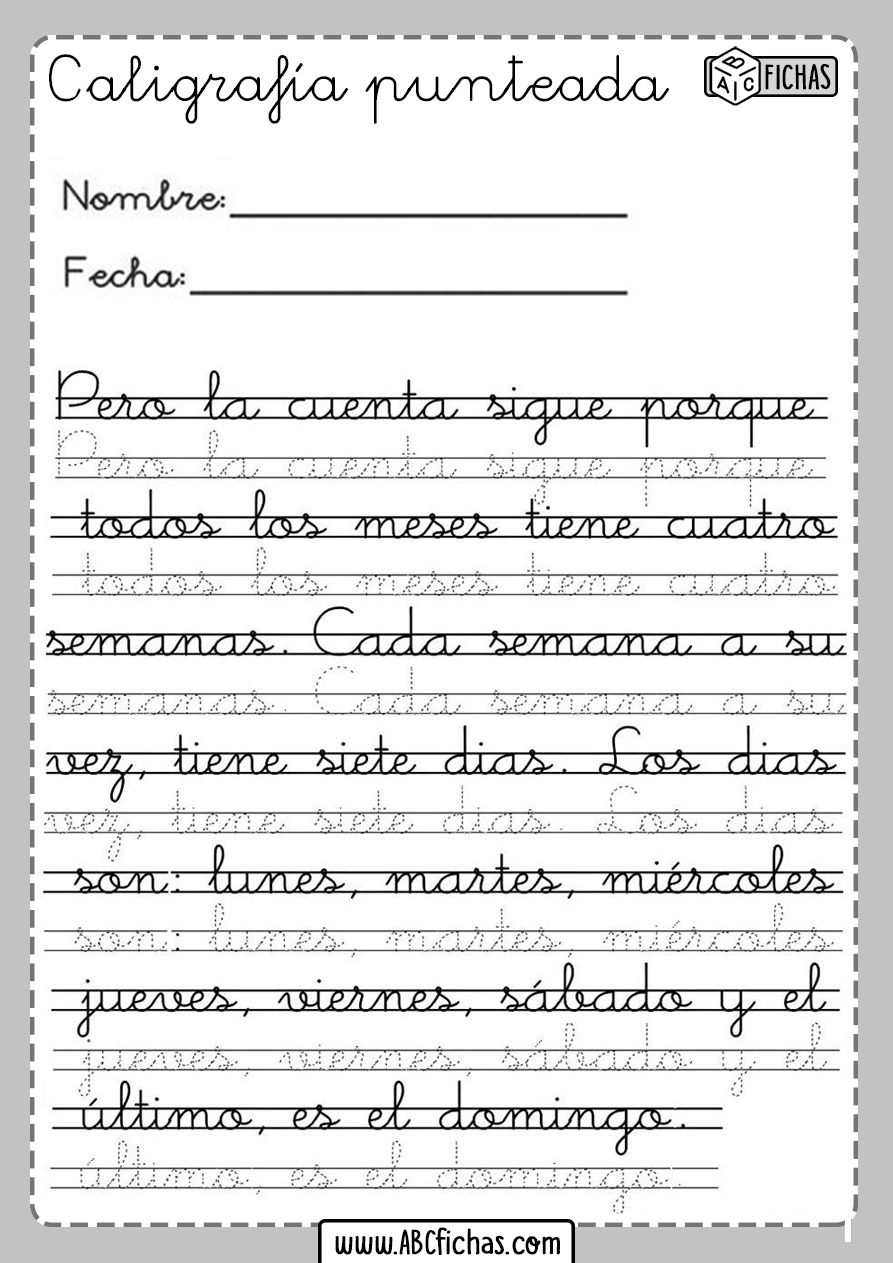 Caligrafía punteada
ABC FICHAS
Nombre:
Fecha:
Pero la cuenta sigue porque
Pero la cuenta sigue porque
todos los meses tiene cuatro
todos los meses tiene cuatro
semanas. Cada semana a su
semanas. Cada semana a su
vez, tiene siete dias. Los dias
vez, tiene siete dias. Los dias
son: lunes, martes, miércoles
son: lunes, martes, miércoles
jueves, viernes, sábado y el
jueves, viernes, sábado y el
último, es el domingo.
último, es el domingo.
www.ABCfichas.com